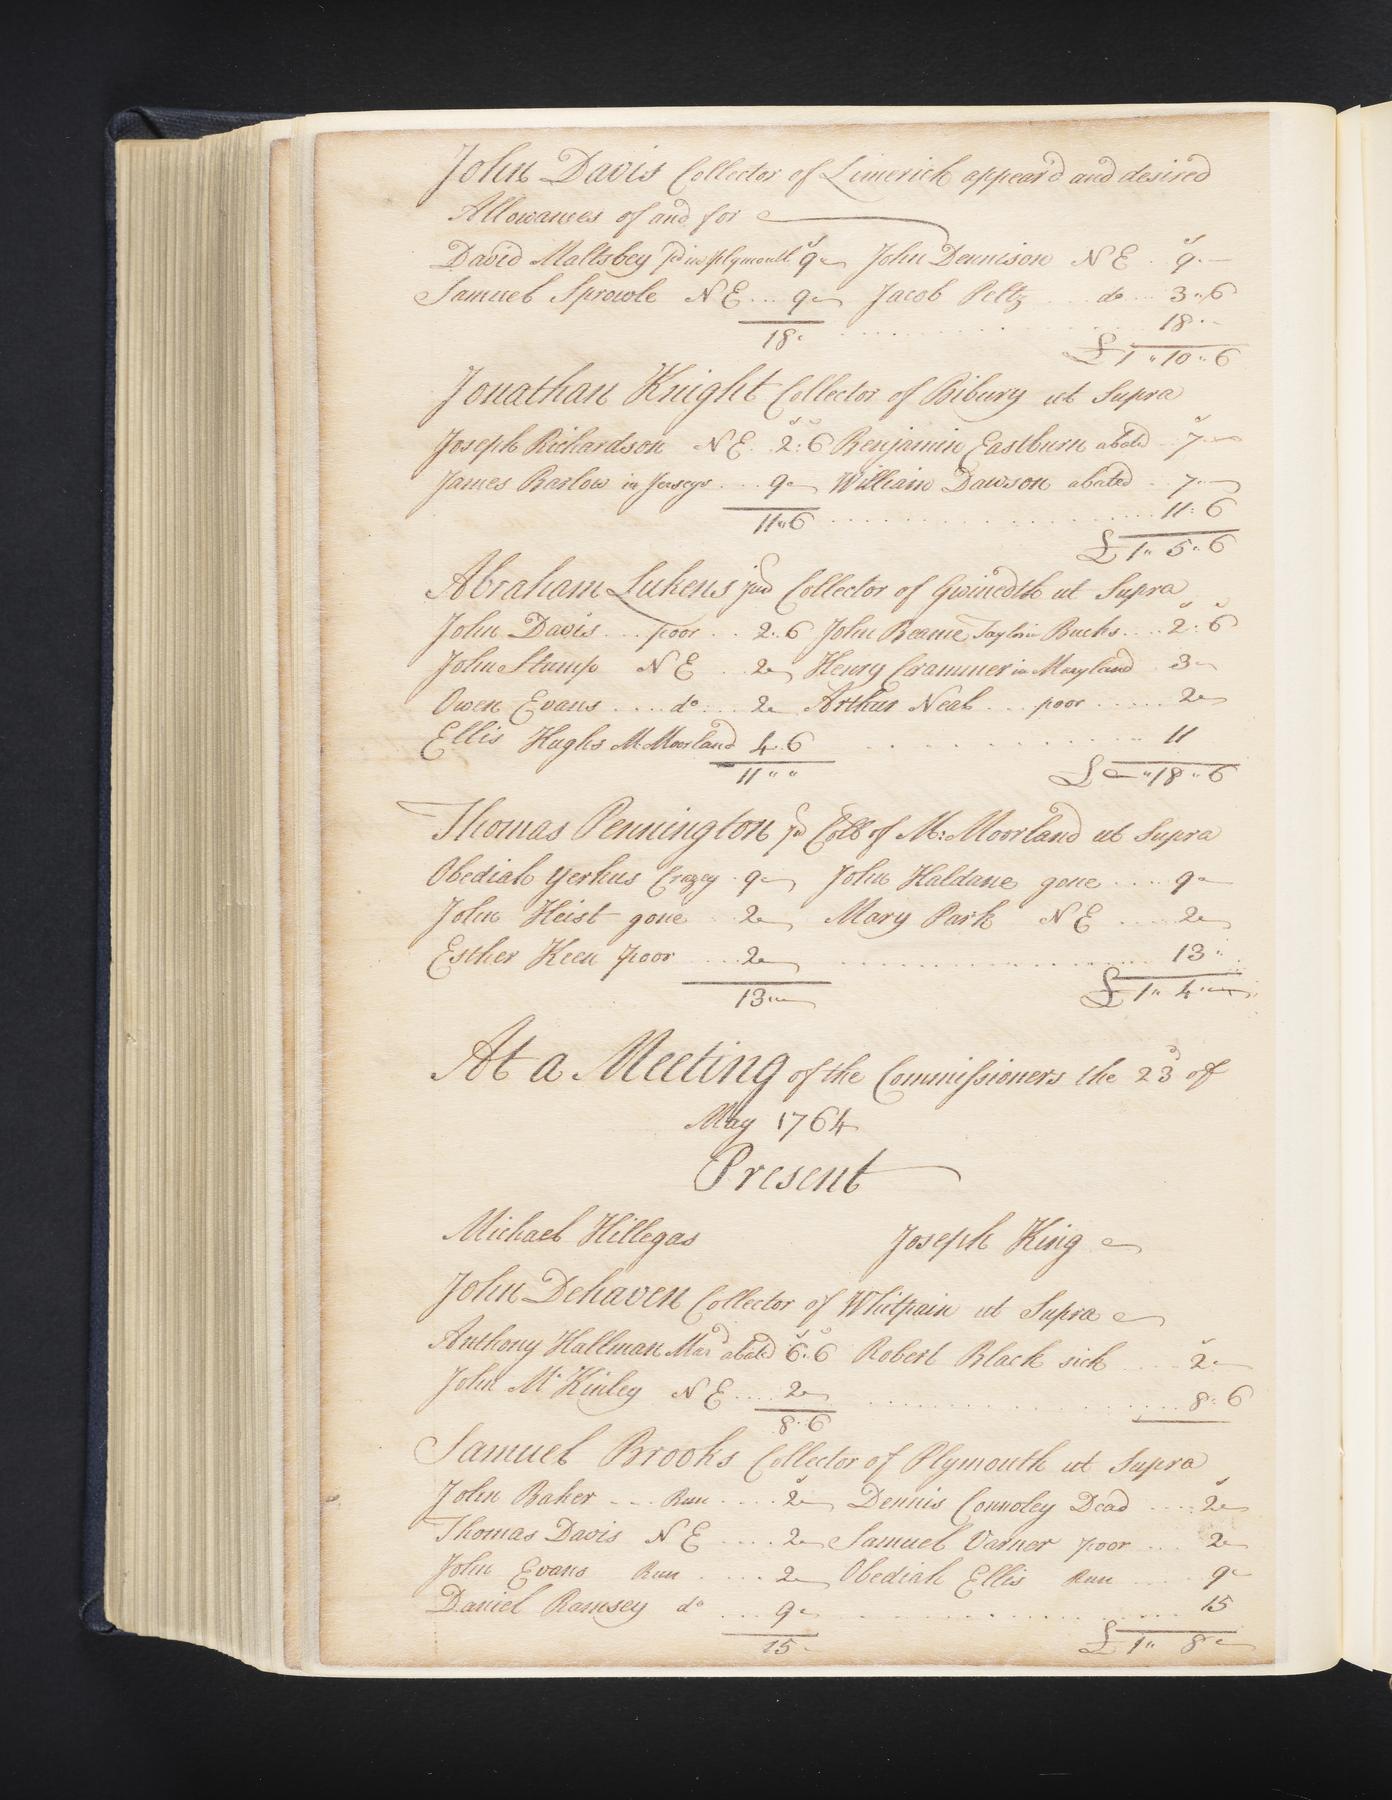 John Davis Collector of Limerick appear'd and desired
Allowances of and for
David Maltsbey pd in Plymouth 9 John Dennison N E . 9 . —
Samuel Sprowle N E ... 9 Jacob Peltz .... do ... 3 " 6
18 . ......... 18 . -
£ 1 " 10 " 6
Jonathan Knight Collector of Bibury ut Supra
Joseph Richardson N E . 2 : 6 Benjamin Eastburn abated .. 7
James Barlow in Jerseys ... 9 William Dawson abated .. 7
11 " 6 ......... 11 : 6
£ 1 " 5 " 6
Abraham Lukens Collector of Gwinedth ut Supra
John Davis ... poor .. 2 .. 6 John Beame Taylor in Bucks .... 2 : 6
John Stump N E .. 2 Henry Crammer in Maryland . 3
Owen Evans .... do ... 2 Arthur Neal ... poor ..... 2
Ellis Hughs M. Moorland 4 . 6 ......... 11
11 " " £ — " 18 " 6
Thomas Pennington Coll of M: Moorland ut Supra
Obediah Yerkus Crazey . 9 John Haldane gone .... 9
John Heist gone .. 2 Mary Park N E .... 2
Esther Keen poor .... 2 ......... 13 "
13 £ 1 " 4 "
At a Meeting of the Commissioners the 23d of
May 1764
Present
Michael Hillegas Joseph King
John Dehaven Collector of Whitpain ut Supra
Anthony Hallman Mard abated 6 : 6 Robert Black sick .... 2
John McKinley N E .... 2 ......... 8 : 6
8 . 6
Samuel Brooks Collector of Plymouth ut Supra
John Baker ... Run .... 2 Dennis Connoley Dead .... 2
Thomas Davis N E .... 2 Samuel Varner poor ... 2
John Evans Run .... 2 Obediah Ellis Run .... 9
Daniel Ramsey do ... 9 ......... 15
15 £ 1 " 8